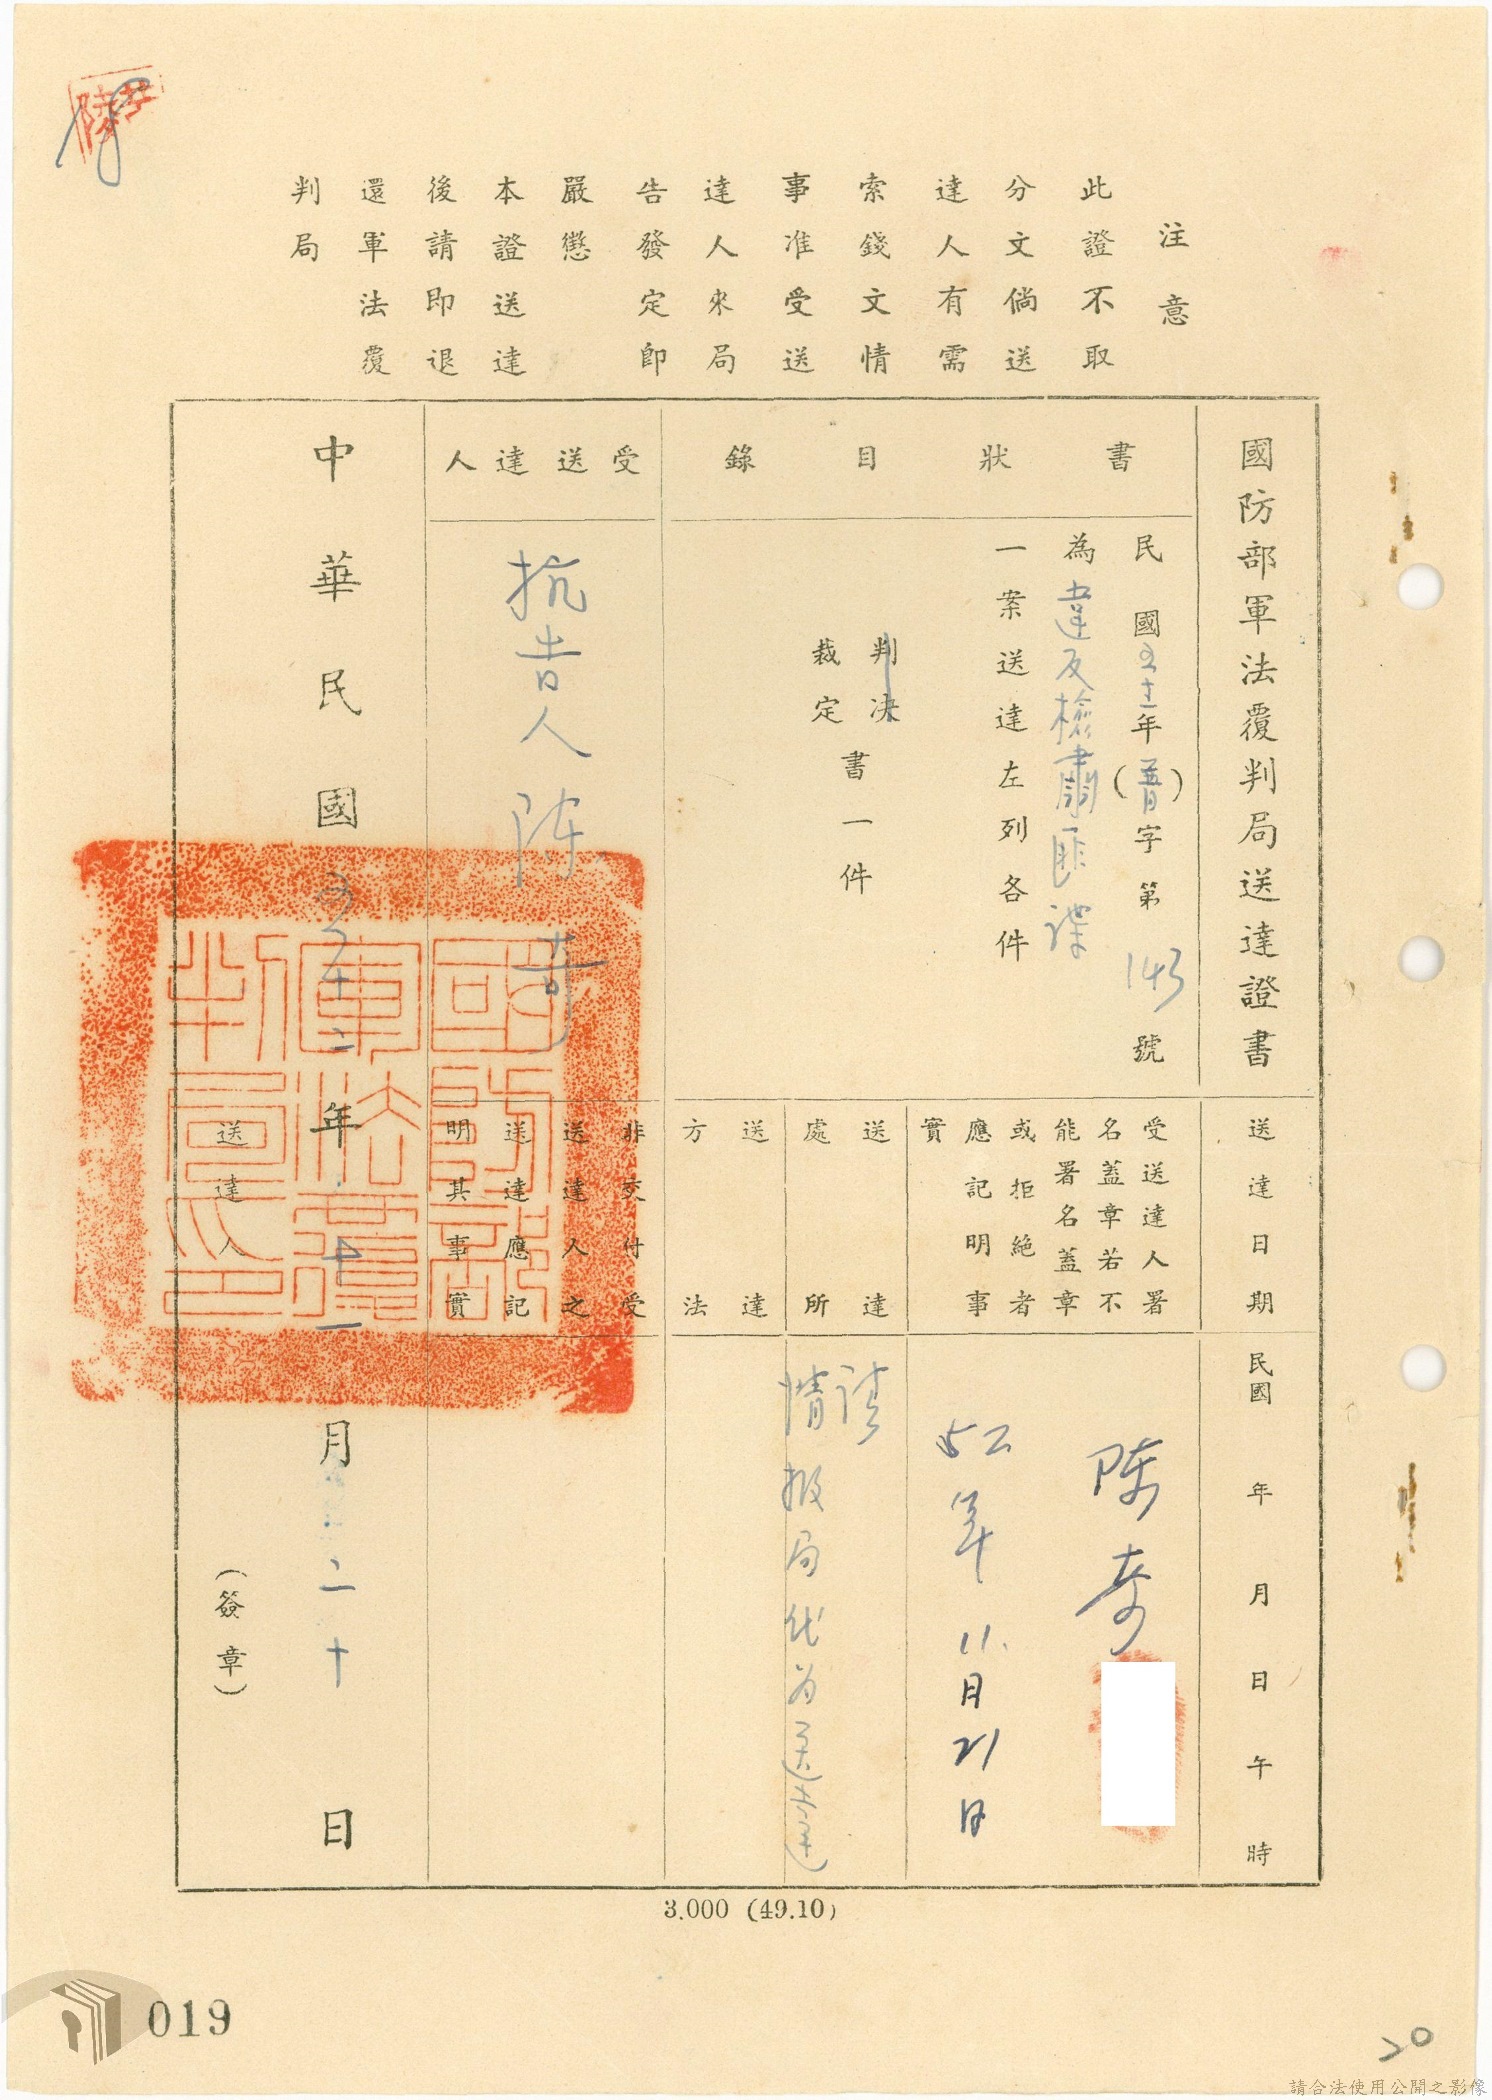 注意
此證不取
分文倘送
達人有需
索錢文情
事准受送
達人來局
告發定即
嚴懲
本證送達
後請即退
還軍法覆
判局
國防部軍法覆判局送達證書
送達日期
民國 年 月 日 午 時
書狀目錄
民國五十二年（普）字第143號
為違反檢肅匪諜
一案送達左列各件
判決
裁定
書一件
受送達人署
名蓋章若不
能署名蓋章
或拒絕者
應記明事
實
陳奇
52年11月21日
送達
處所
請
情報局代為送達
送達
方法
受送達人
抗告人陳奇
非交付受
送達人之
送達應記
明其事實
中華民國五十二年十一月二十日
送達人
（簽章）
國防部軍法覆判局印
3.000 (49.10)
019
20
請合法使用公開之影像